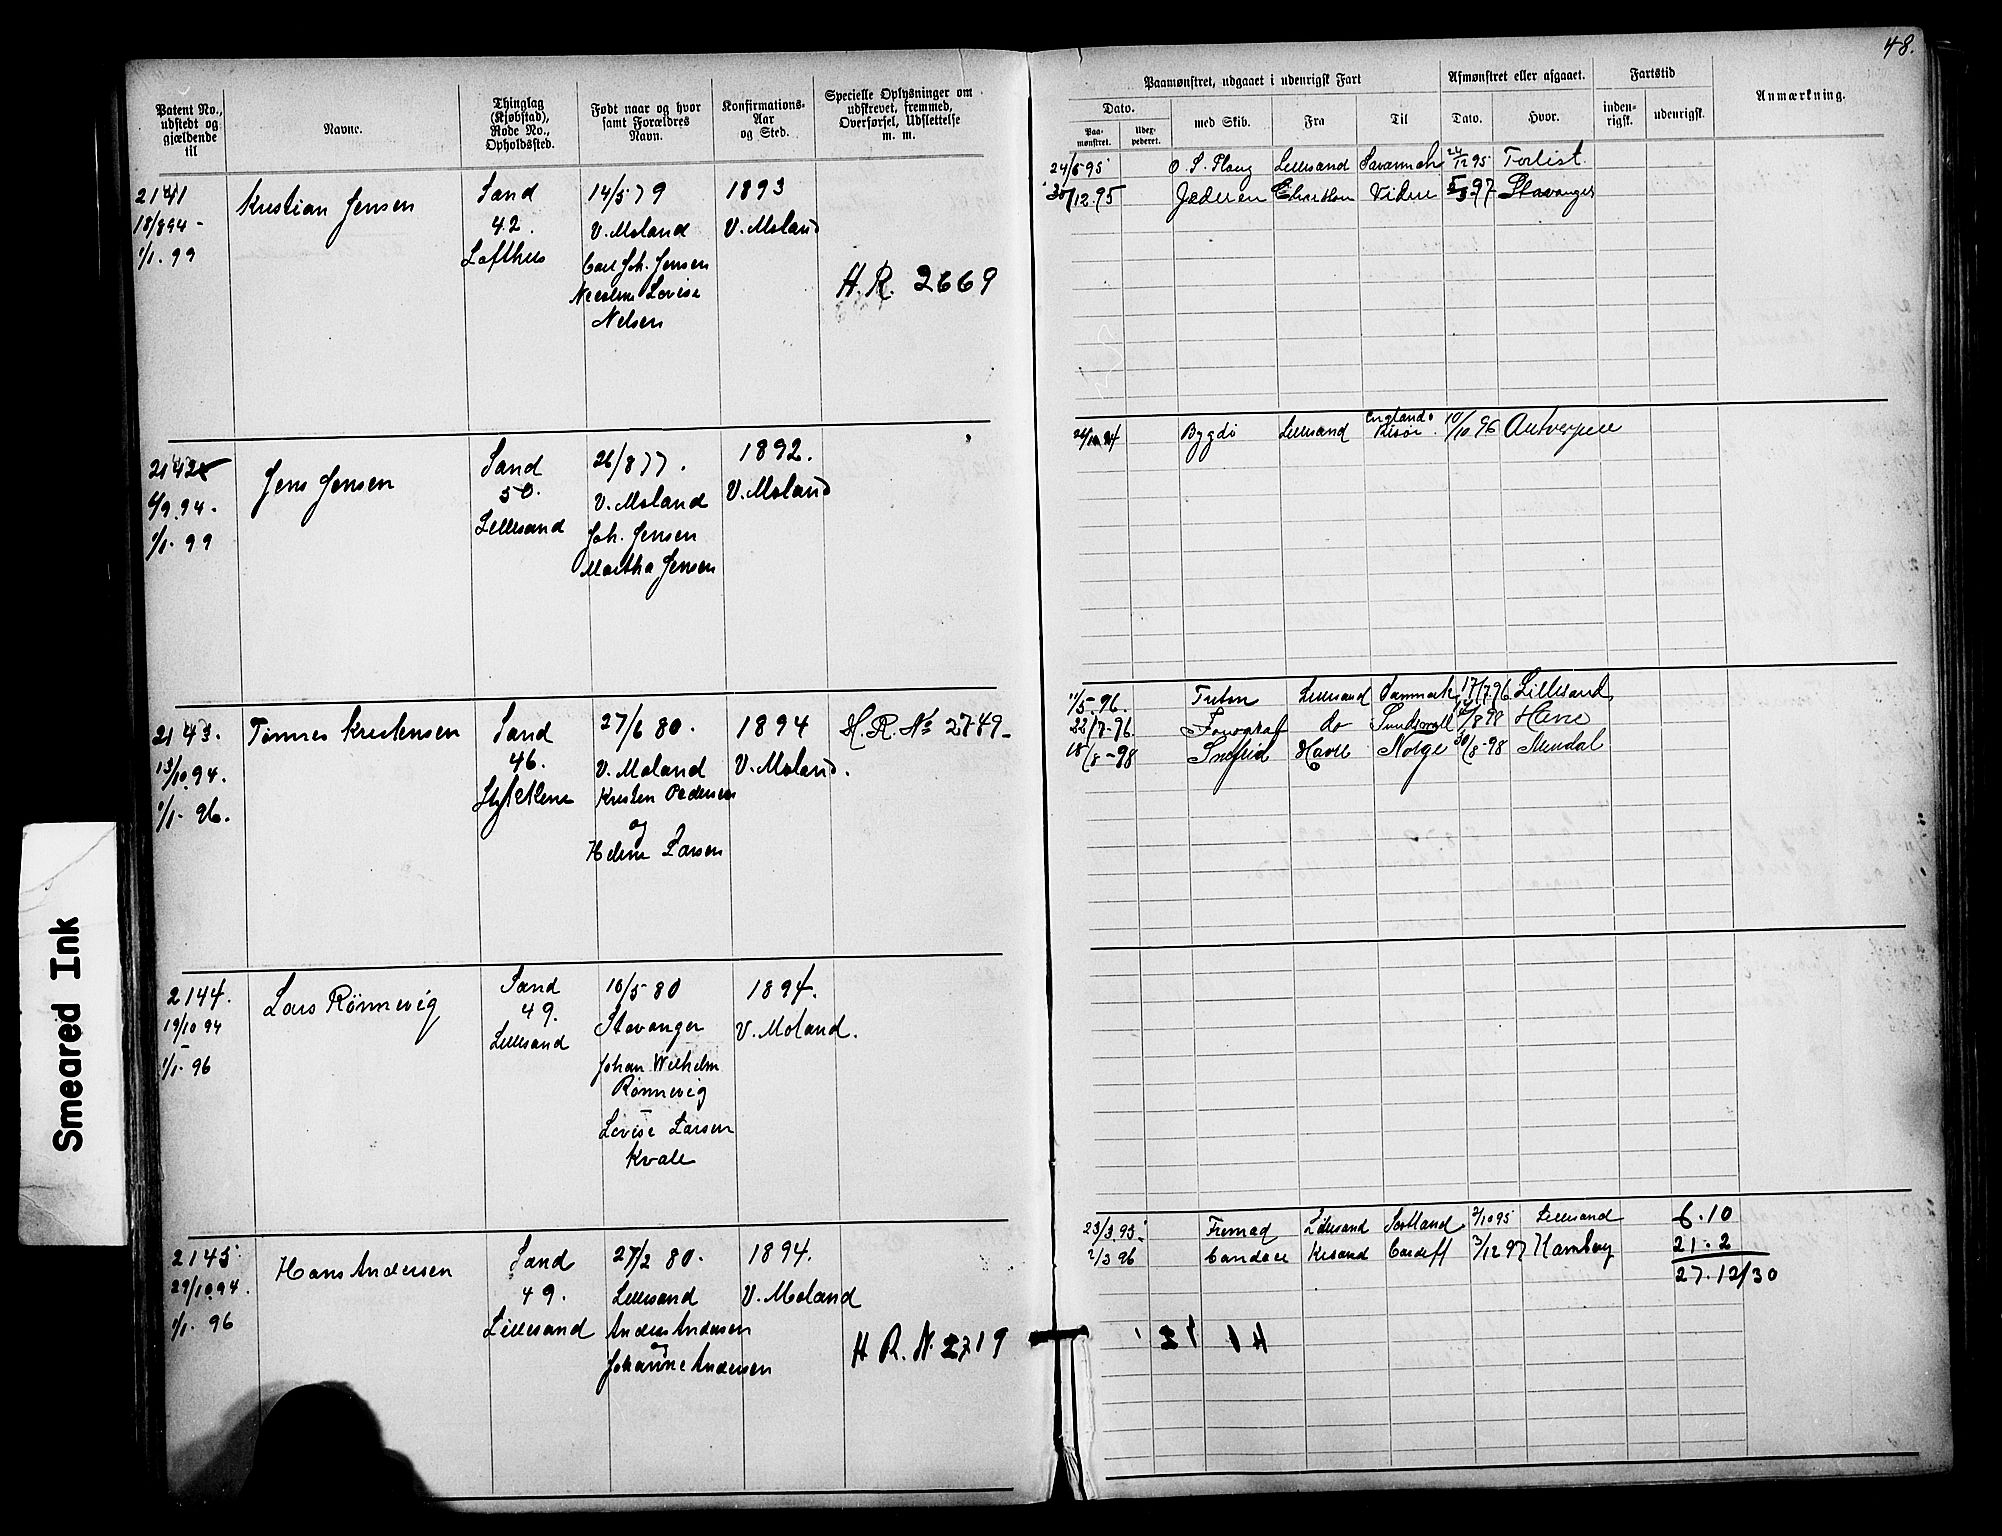 48.
Patent No., udstedt og gjældende til
Navne.
Thinglag (Kjøbstad), Rode No., Opholdssted.
Født naar og hvor samt Forældres Navn.
Konfirmations- Aar og Sted.
Specielle Oplysninger om udskrevet, fremmed, Overførsel, Udslettelse m. m.
Paamønstret, udgaaet i udenrigsk Fart
Dato.
Paa- mønstret.
Udex- pederet.
med Skib.
Fra
Til
Afmønstret eller afgaaet.
Dato.
Hvor.
Fartstid
inden- rigsk.
udenrigsk.
Anmærkning.
2141
18/8 94 -
1/1. 99
Kristian Jensen
Sand
42.
Lofthus
14/5 79
V. Moland
Carl Joh. Jensen
Lovise
Nelsen
1893
V. Moland
H. R. 2669
24/6 95 Lillesand Savannah 24/12 95 Forlist.
30/12. 95 Jæderen Viden 97 Stavanger
2142
6/9. 94.
1/1. 99
Jens Jensen
Sand
50.
Lillesand
26/8 77.
V. Moland
Joh. Jensen
Martha Jensen
1892.
V. Moland
Bygdø Lillesand England Risør. 10/10 96 Antverpen
2143.
13/10. 94.
1/1. 96.
Tønnes Kristensen
Sand
46.
Stykkene
27/6 80.
V. Moland
Kristen Pedersen
og
Helene Larsen
1894
V. Moland.
H. R. No 2749
11/5 - 96. Triton Lillesand Danmark 17/7. 96 Lillesand
22/7 - 96. do Sundsvall /8 98
18/8 - 98 Havre Norge 30/8 - 98 Mandal
2144.
19/10 94
1/1. 96
Lars Rønnevig
Sand
49.
Lillesand
10/5 80
Stavanger
Johan Wilhelm
Rønnevig
Lovise Larsen
Kvale
1894.
V. Moland.
2145
29/10. 94.
1/1. 96
Hans Andersen
Sand
49.
Lillesand
27/2 80.
Lillesand
Anders Andersen
og
Johanne Andersen
1894.
V. Moland
H. R. N. 2719
23/3. 95. Fremad Lillesand Skotland 2/10 95 Lillesand 6. 10
2/3 96 Candace Krsand Cardiff 3/12 97 Hamborg 21. 2
27. 12/30
Smeared Ink